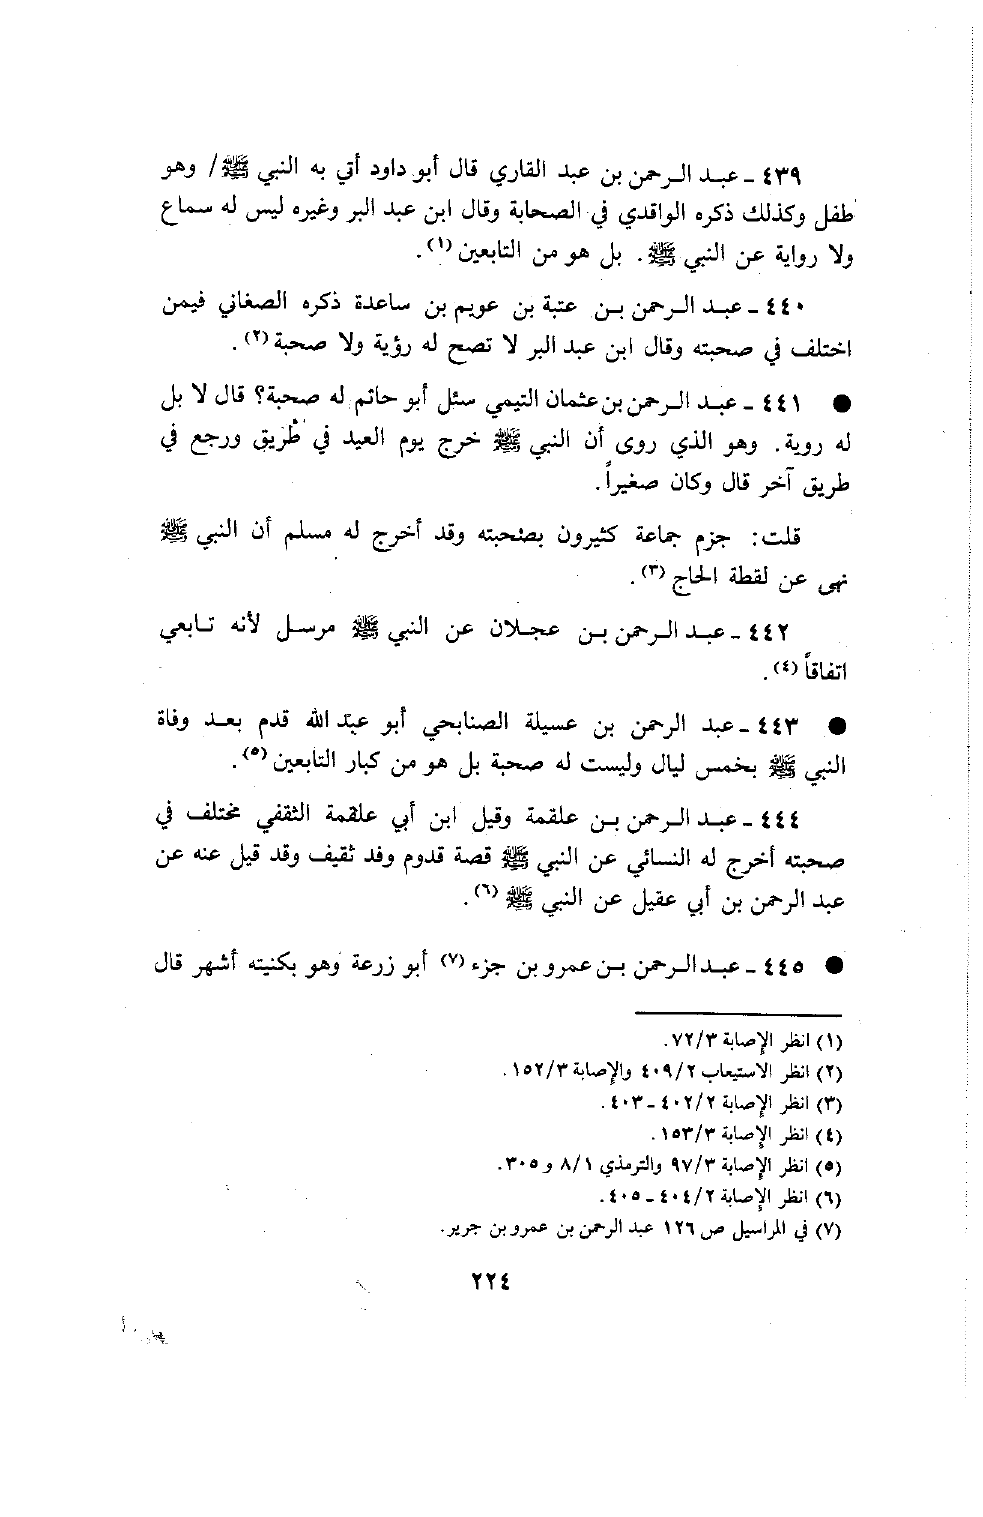 ٤٣٩ ـ عبد الرحمن بن عبد القاري قال أبو داود أتي به النبي ﷺ/ وهو
طفل وكذلك ذكره الواقدي في الصحابة وقال ابن عبد البر وغيره ليس له سماع
ولا رواية عن النبي ﷺ. بل هو من التابعين (١).
٤٤٠ ـ عبد الرحمن بن عتبة بن عويم بن ساعدة ذكره الصغاني فيمن
اختلف في صحبته وقال ابن عبد البر لا تصح له رؤية ولا صحبة (٢).
● ٤٤١ ـ عبد الرحمن بن عثمان التيمي سئل أبو حاتم له صحبة؟ قال لا بل
له روية. وهو الذي روى أن النبي ﷺ خرج يوم العيد في طريق ورجع في
طريق آخر قال وكان صغيراً.
قلت: جزم جماعة كثيرون بصحبته وقد أخرج له مسلم أن النبي ﷺ
نهى عن لقطة الحاج (٣).
٤٤٢ ـ عبد الرحمن بن عجلان عن النبي ﷺ مرسل لأنه تابعي
اتفاقاً (٤).
● ٤٤٣ ـ عبد الرحمن بن عسيلة الصنابحي أبو عبد الله قدم بعد وفاة
النبي ﷺ بخمس ليال وليست له صحبة بل هو من كبار التابعين (٥).
٤٤٤ ـ عبد الرحمن بن علقمة وقيل ابن أبي علقمة الثقفي مختلف في
صحبته أخرج له النسائي عن النبي ﷺ قصة قدوم وفد ثقيف وقد قيل عنه عن
عبد الرحمن بن أبي عقيل عن النبي ﷺ (٦).
● ٤٤٥ ـ عبد الرحمن بن عمرو بن جزء (٧) أبو زرعة وهو بكنيته أشهر قال
(١) انظر الإصابة ٧٢/٣.
(٢) انظر الاستيعاب ٤٠٩/٢ والإصابة ١٥٢/٣.
(٣) انظر الإصابة ٤٠٢/٢ ـ ٤٠٣.
(٤) انظر الإصابة ١٥٣/٣.
(٥) انظر الإصابة ٩٧/٣ والترمذي ٨/١ و ٣٠٥.
(٦) انظر الإصابة ٤٠٤/٢ ـ ٤٠٥.
(٧) في المراسيل ص ١٢٦ عبد الرحمن بن عمرو بن جرير.
٢٢٤